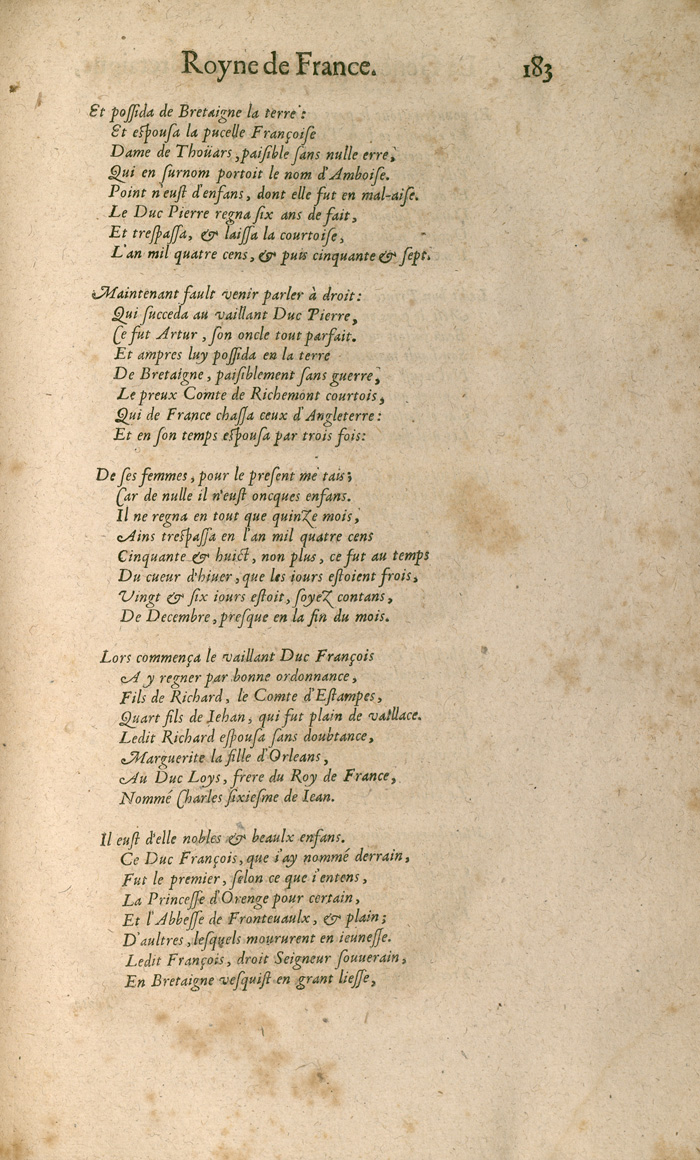 Royne de France. 183
Et possida de Bretaigne la terre:
Et espousa la pucelle Françoise
Dame de Thoüars, paisible sans nulle erre,
Qui en surnom portoit le nom d'Amboise.
Point n'eust d'enfans, dont elle fut en mal-aise.
Le Duc Pierre regna six ans de fait,
Et trespassa, & laissa la courtoise,
L'an mil quatre cens, & puis cinquante & sept.
Maintenant fault venir parler à droit:
Qui succeda au vaillant Duc Pierre,
Ce fut Artur, son oncle tout parfait.
Et ampres luy possida en la terre
De Bretaigne, paisiblement sans guerre,
Le preux Comte de Richemont courtois,
Qui de France chassa ceux d'Angleterre:
Et en son temps espousa par trois fois:
De ses femmes, pour le present me tais;
Car de nulle il n'eust oncques enfans.
Il ne regna en tout que quinze mois,
Ains trespassa en l'an mil quatre cens
Cinquante & huict, non plus, ce fut au temps
Du cueur d'hiuer, que les iours estoient frois,
Vingt & six iours estoit, soyez contans,
De Decembre, presque en la fin du mois.
Lors commença le vaillant Duc François
A y regner par bonne ordonnance,
Fils de Richard, le Comte d'Estampes,
Quart fils de Iehan, qui fut plain de vaillace.
Ledit Richard espousa sans doubtance,
Marguerite la fille d'Orleans,
Au Duc Loys, frere du Roy de France,
Nommé Charles sixiesme de Iean.
Il eust d'elle nobles & beaulx enfans.
Ce Duc François, que i'ay nommé derrain,
Fut le premier, selon ce que i'entens,
La Princesse d'Orenge pour certain,
Et l'Abbesse de Fronteuaulx, & plain;
D'aultres, lesquels moururent en ieunesse.
Ledit François, droit Seigneur souuerain,
En Bretaigne vesquist en grant liesse,